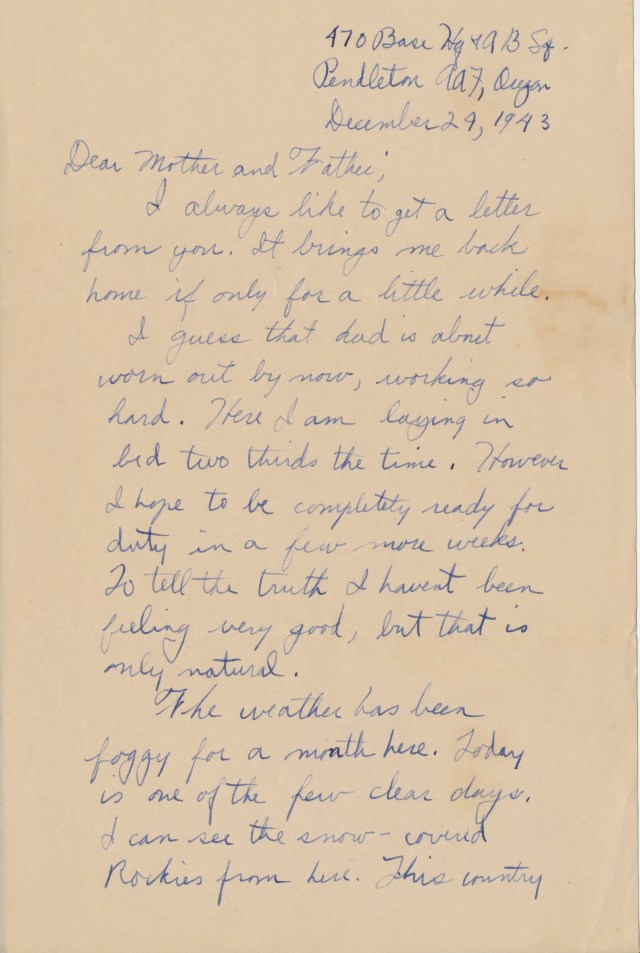 470 Base Hq & A B Sq.
Pendleton AAF, Oregon
December 29, 1943
Dear Mother and Father,
I always like to get a letter
from you. It brings me back
home if only for a little while.
I guess that dad is about
worn out by now, working so
hard. Here I am laying in
bed two thirds the time. However
I hope to be completely ready for
duty in a few more weeks.
To tell the truth I havent been
feeling very good, but that is
only natural.
The weather has been
foggy for a month here. Today
is one of the few clear days.
I can see the snow-covered
Rockies from here. This country